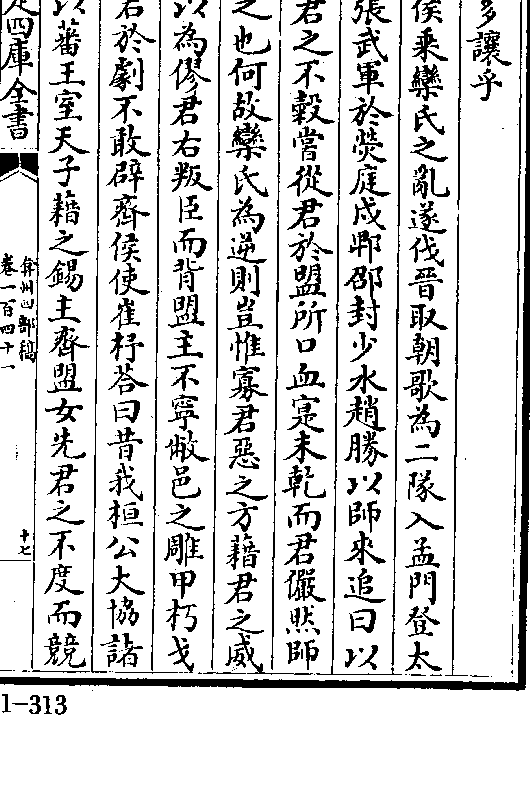 多讓乎
侯乘欒氏之亂遂伐晉取朝歌為二隊入孟門登太
張武軍於熒庭戍郫邵封少水趙勝以師來追曰以
君之不穀嘗從君於盟所口血寔未乾而君儼然師
之也何故欒氏為逆則豈惟寡君惡之方藉君之威
以為僇君右叛臣而背盟主不寧敝邑之雕甲朽戈
若於劇不敢辟齊侯使崔杼荅曰昔我桓公大協諸
以蕃王室天子藉之錫主齊盟女先君之不度而競
定四庫全書
弇州四部稿
卷一百四十一
十七
1-313